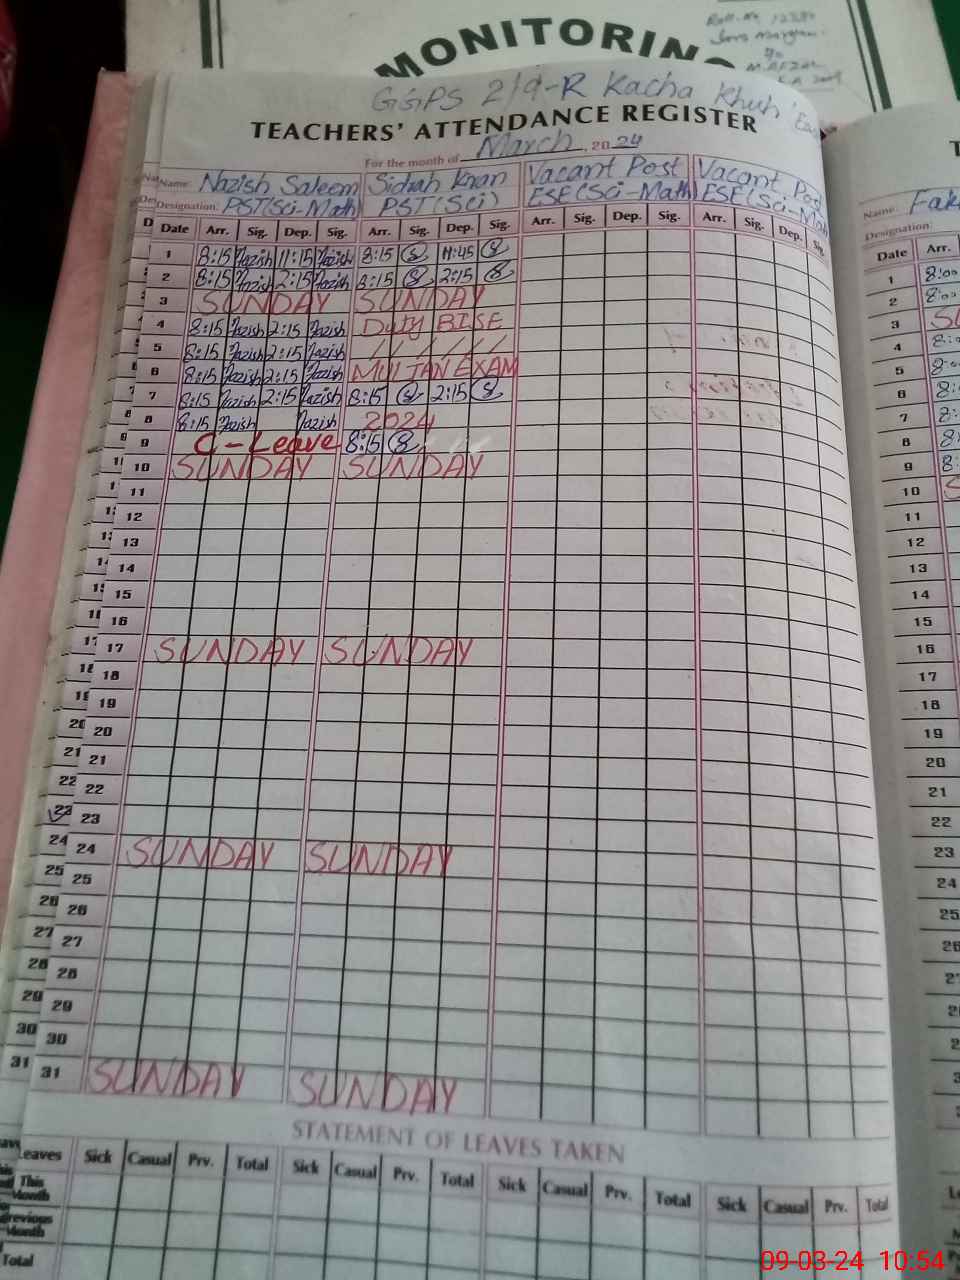 MONITORIN
GGPS 2/9-R Kacha Khuh
TEACHERS' ATTENDANCE REGISTER
For the month of March, 2024
Name: Nazish Saleem Sidrah Khan Vacant Post Vacant Pos
Designation: PST(Sci-Math) PST(Sci) ESE(Sci-Math) ESE(Sci-Math
Date Arr. Sig. Dep. Sig. Arr. Sig. Dep. Sig. Arr. Sig. Dep. Sig. Arr. Sig. Dep. Sig.
1 8:15 Nazish 11:15 Nazish 8:15 11:45
2 8:15 Nazish 2:15 Nazish 8:15 2:15
3 SUNDAY SUNDAY
4 8:15 Nazish 2:15 Nazish Duty BISE
5 8:15 Nazish 2:15 Nazish
6 8:15 Nazish 2:15 Nazish MULTAN EXAM
7 8:15 Nazish 2:15 Nazish 8:15 2:15
8 8:15 Nazish Nazish 2024
9 C-Leave 8:15
10 SUNDAY SUNDAY
11
12
13
14
15
16
17 SUNDAY SUNDAY
18
19
20
21
22
23
24 SUNDAY SUNDAY
25
26
27
28
29
30
31 SUNDAY SUNDAY
STATEMENT OF LEAVES TAKEN
Leaves Sick Casual Prv. Total Sick Casual Prv. Total Sick Casual Prv. Total Sick Casual Prv. Total
This
Month
Previous
Month
Total
Name: Fak
Designation:
Date Arr.
1 8:00
2 8:00
3 S
4 8:
5 8:
6 8:
7 8:
8 8:
9 8:
10 S
11
12
13
14
15
16
17
18
19
20
21
22
23
24
25
26
09-03-24 10:54